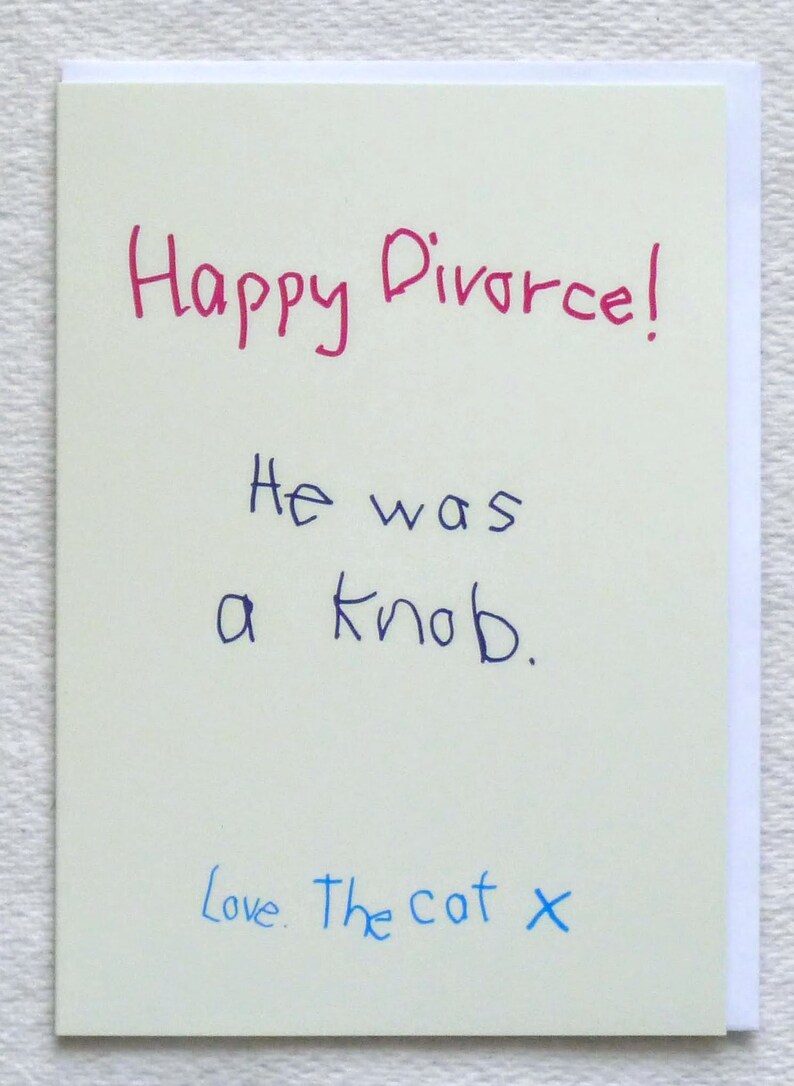 Happy Divorce!
He was
a knob.
Love. The cat x